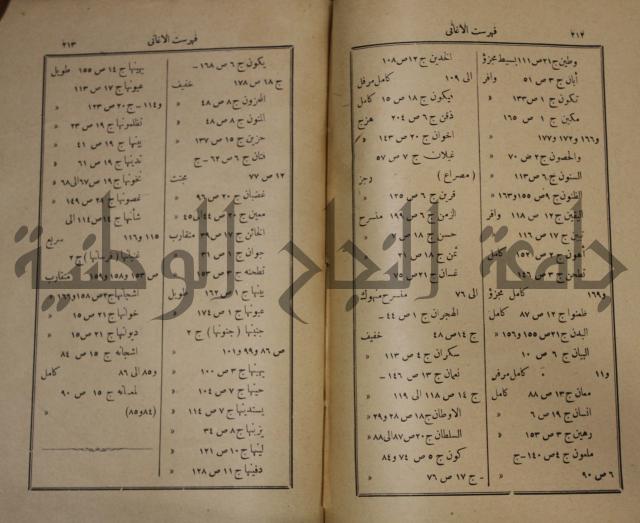 ٢١٢
فهرست الاغانى
وطين ج٢١ص١١١ بسيط مجزؤ
أبان ج ٣ ص ٥١ وافر
تكون ج ١ ص ١٣٣ »
مكين ج ١ ص ١٦٥
و١٦٦ و١٧٢ و١٧٧ »
والحصون ج٢ ص ٧٠ »
السنون ج ٦ ص١١٣ »
الظنون ج٩ص١٥٥و١٦٣ »
اليقين ج ١٢ ص ١١٨ وافر
تين ج ١٧ ص ١١٦ »
أهون ج ٢ ص ١٥٢ كامل
تطحن ج ٣ ص ١٤٦
و١٦٩ كامل مجزؤ
ظعنوا ج ١٢ ص ٨٧ كامل
البدن ج٢١ص١٥٥و١٥٦ »
البيان ج ٦ ص ١٠
و١١ كامل مرفر
معان ج١٣ ص ٨٨ كامل
انسان ج ١٩ ص ٦ »
رهين ج ٣ ص ١٥٣ »
ملمون ج ٤ ص ١٤٠ -ج
٦ ص ٩٠ »
الخدين ج ١٢ص١٠٨
الى ١٠٩ كامل مرفل
فيكون ج ١٨ ص ١٥ كامل
ذقن ج ٦ ص ٢٠٤ هزج
اخوان ج ٢٠ ص ١٤٣ »
غيلان ج ٧ ص ٥٧
( مصراع ) رجز
قرين ج ٦ ص ١٢٥ »
الزمن ج ٦ ص ١٩٩ منسرح
حسن ج ١٨ ص
ثمن ج ١٨ ص
غسان ج ٢١ ص ٧٥
الى ٧٦ منسرح منهوك
الهجران ج ١ ص ٤٤ -
ج ١٤ ص ٤٨ خفيف
سكران ج ٤ ص ١١٣ »
نعمان ج ١٣ ص ١٤٦-
ج ١٤ ص ١١٨ الى ١١٩ »
الاوطان ج١٨ص ٢٨ و٢٩ »
السلطان ج٢٠ص٨٧الى٨٨ »
كون ج ٥ ص ٧٤ و٨٤
- ج ١٧ ص ٧٦ »
فهرست الاغانى
٢١٣
يكون ج ٦ ص ١٦٨-
ج ١٨ ص ١٧٨ خفيف
المحزون ج ٨ ص ٤٨ »
المنون ج ٨ ص ٤٨ »
حزين ج ١٥ ص ١٣٧ »
فتان ج ٦ ص ٦٢-ج
١٢ ص ٧٧ مجتث
غضبان ج ٢٠ ص ٩٦ »
معين ج ٢٠ ص ٤٤الى٤٥ »
الخائن ج ١٧ ص ٣٩ متقارب
جوان ج ١ ص ٣١ »
تطحنه ج ٣ ص ١٥٣ »
بينها ج ١ ص ١٦٢ طويل
عيونها ج ١ ص ١٧٤ »
جنينها ( جنونها ) ج ٢
ص ٨٦ و٩٩ و١٠١ »
يهينها ج ٣ ص ١٠٠ »
حينها ج ٧ ص ١٠٤ »
يستدينها ج ٧ ص ١١٤ »
يزينها ج ٨ ص ٣٤ »
لينها ج ١٠ ص ١٢١ »
دفينها ج ١١ ص ١٢٨ »
يبينها ج ١٤ ص ١٥٥ طويل
عيونها ج ١٧ ص ١١٣
و١١٤-ج ٢٠ ص ١٢٣ »
تظلمونها ج ١٩ ص ٢٣ »
بينها ج ١٩ ص ٤١ »
تدينها ج ١٩ ص ٦١ »
تخونها ج ١٩ ص٦٧الى٦٨ »
غصونها ج ٢٠ ص ١٤٩ »
شأنها ج ١٤ص١١٤ الى
١١٥ و١١٦ سريع
( فرسانها ) ج ٢
ص ١٥٣و١٥٨و١٥٩ متقارب
اشجانها ج٢ ص١٥٨و١٦٦ »
خوانها ج ٢١ ص ١٥ »
ديوانها ج ٢١ ص١٥ »
اشجانه ج ١٥ ص ٨٤
و٨٥ الى ٨٦ كامل
لمعانه ج ١٥ ص ٩٠
(٨٤و٨٥) »
جامعة النجاح الوطنية